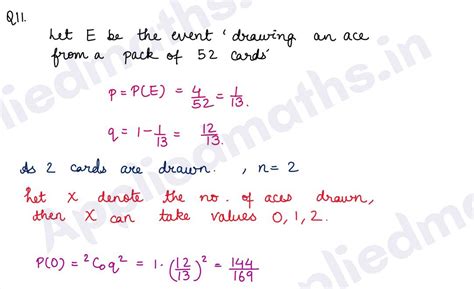 Q11.
Let E be the event 'drawing an ace
from a pack of 52 cards'
p = P(E) = 4/52 = 1/13.
q = 1 - 1/13 = 12/13.
As 2 cards are drawn. , n = 2
Let X denote the no. of aces drawn,
then X can take values 0, 1, 2.
P(0) = ²C₀q² = 1 · (12/13)² = 144/169
Appliedmaths.in